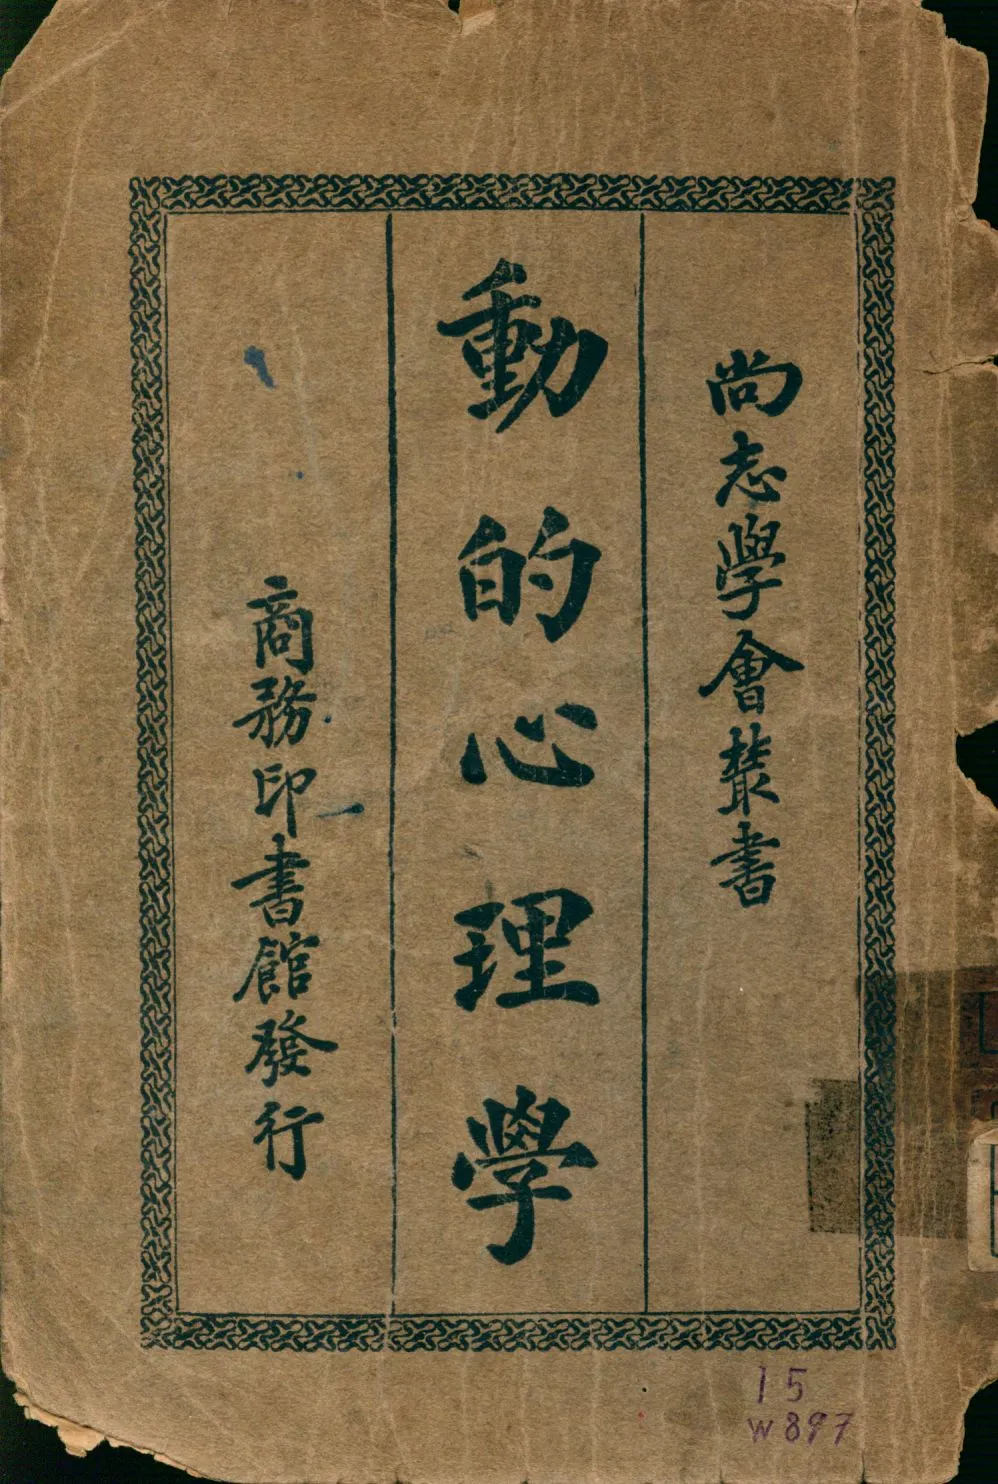 尚志學會叢書
動的心理學
商務印書館發行
15
W897